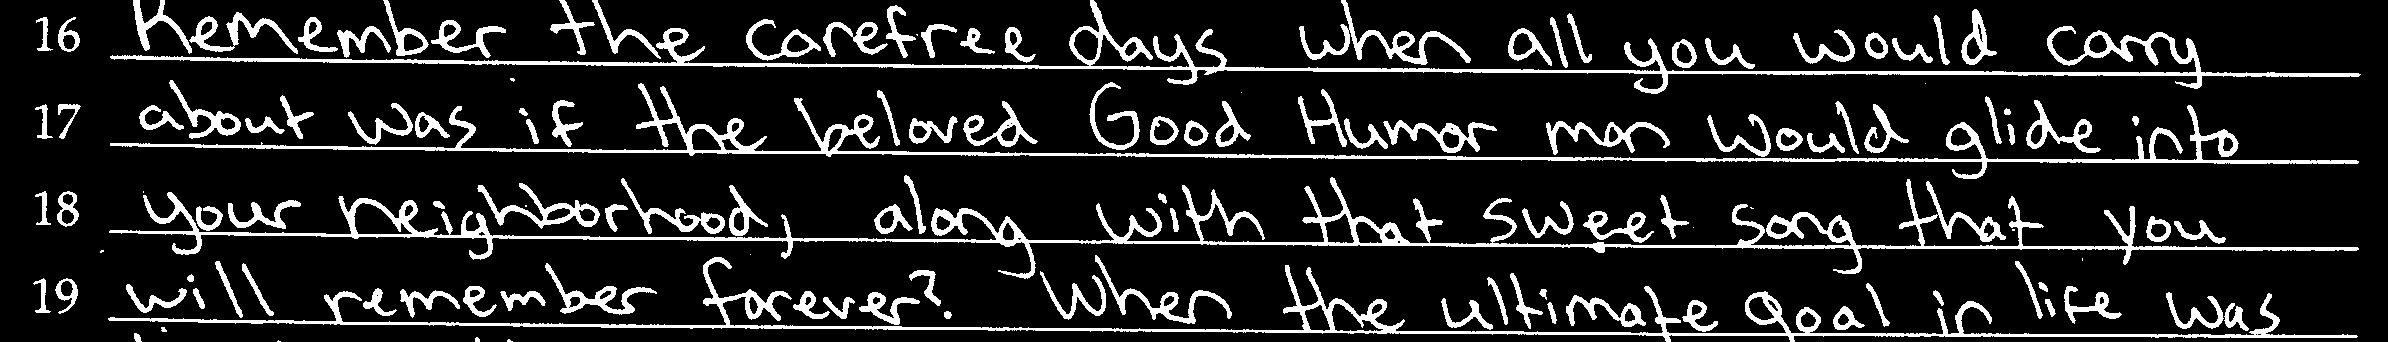 16 Remember the carefree days when all you would carry
17 about was if the beloved Good Humor man would glide into
18 your neighborhood, along with that sweet song that you
19 will remember forever? When the ultimate goal in life was